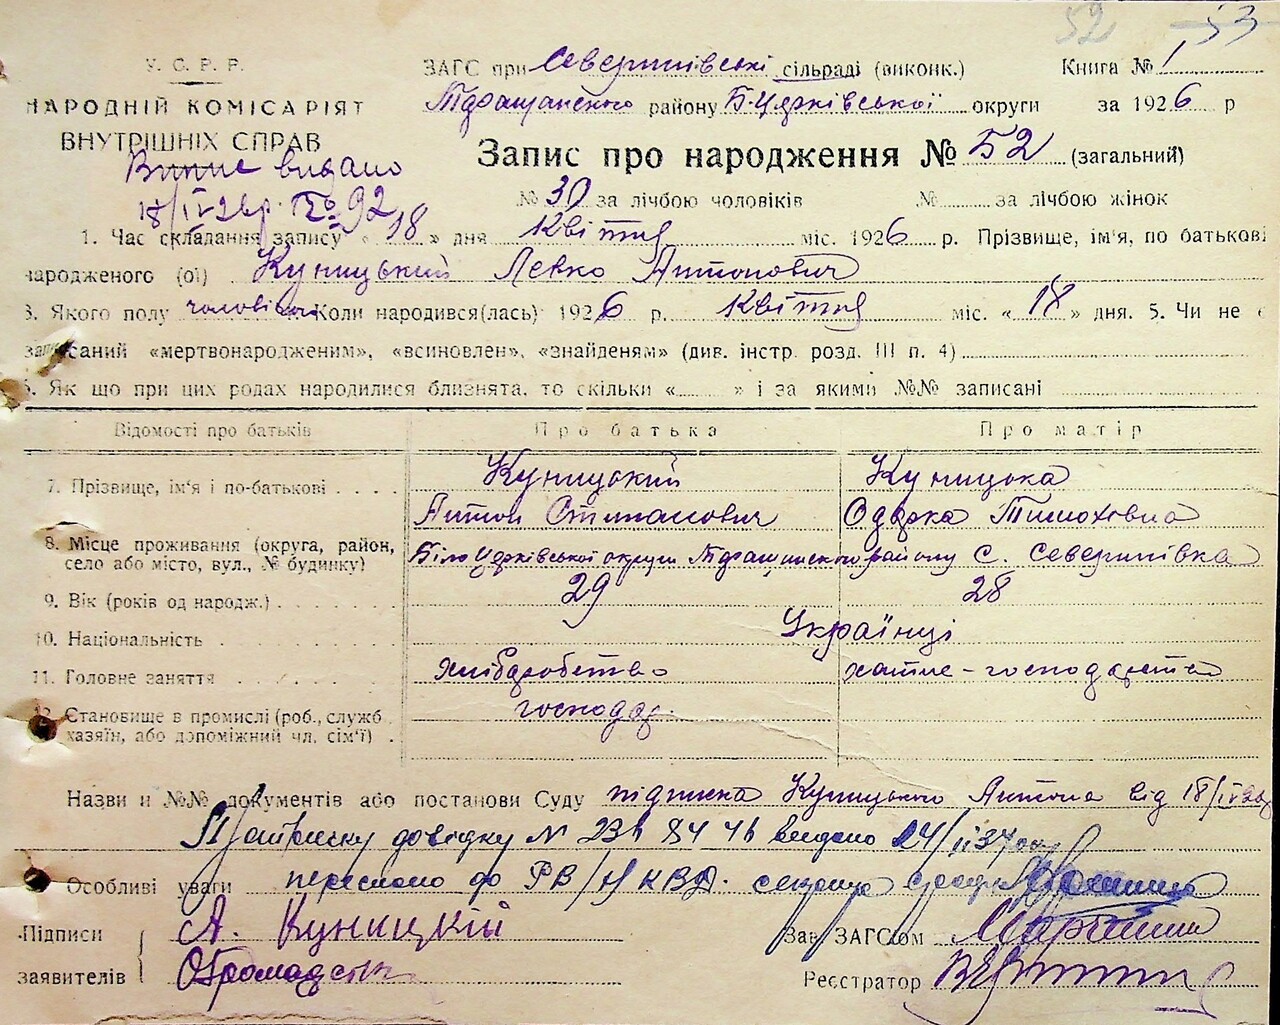 52 53
У. С. Р. Р.
НАРОДНІЙ КОМІСАРІЯТ
ВНУТРІШНІХ СПРАВ
Випис видано
18/IV 26 р. № 92
ЗАГС при Северинівські сільраді (виконк.) Книга № 1
Тдращанского району Б-Церківської округи за 1926 р
Запис про народження № 52 (загальний)
№ 30 за лічбою чоловіків № за лічбою жінок
1. Час складання запису « 18 » дня Квітня міс. 1926 р. Прізвище, ім'я, по батькові
народженого (ої) Куницький Левко Антонович
3. Якого полу чоловічої Коли народився(лась) 1926 р. Квітня міс. « 18 » дня. 5. Чи не є
записаний «мертвонародженим», «всиновлен», «знайденям» (див. інстр. розд. III п. 4)
6. Як що при цих родах народилися близнята, то скільки « » і за якими №№ записані
Відомості про батьків Про батька Про матір
7. Прізвище, ім'я і по-батькові Куницький Куницька
Антон Степанович Одарка Тимохівна
8. Місце проживання (округа, район, село або місто, вул., № будинку) Біло Церківської округи Тдращанского району С. Северинівка
9. Вік (років од народж.) 29 28
10. Національність Українці
11. Головне заняття хліборобство хатнє-господарство
12. Становище в промислі (роб., служб. хазяїн, або допоміжний чл. сім'ї) господар.
Назви и №№ документів або постанови Суду підписка Куницького Антона від 18/IV 26 р
довідку № видано 24/II 37 року
Особливі уваги переслано до РВ/НКВД.
Підписи заявителів А. Куницкій
Зав. ЗАГС'ом
Реєстратор